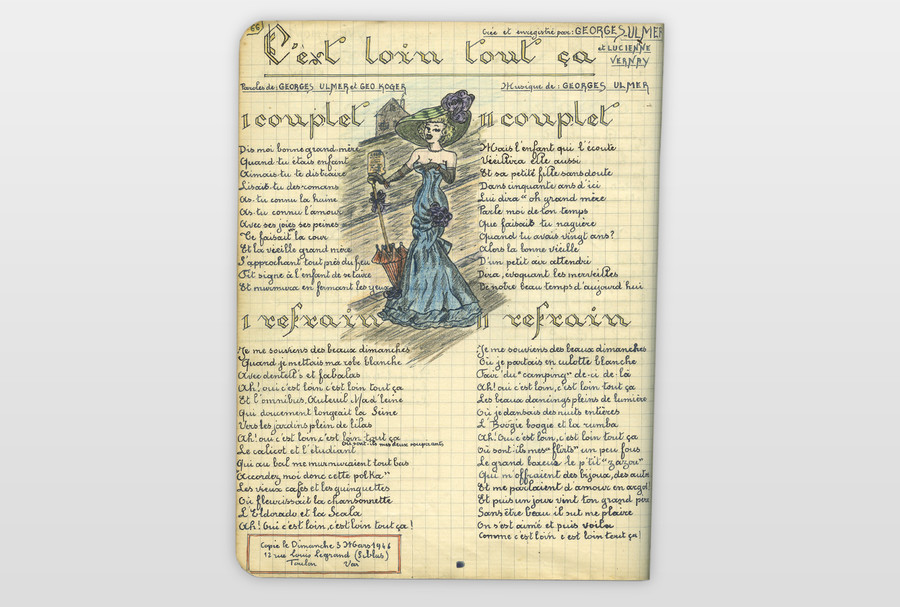 66
Crée et enregistré par: GEORGES ULMER
et LUCIENNE
VERNAY
C'est loin tout ça
Paroles de: GEORGES ULMER et GEO KOGER
Musique de: GEORGES ULMER
I couplet
Dis moi bonne grand mère
Quand tu étais enfant
Aimais-tu te distraire
Lisais-tu des romans
As-tu connu la haine
As-tu connu l'amour
Avec ses joies ses peines
Te faisait la cour
Et la vieille grand mère
S'approchant tout près du feu
Fit signe à l'enfant de se taire
Et murmura en fermant les yeux
I refrain
Je me souviens des beaux dimanches
Quand je mettais ma robe blanche
Avec dentell's et falbalas
Ah! oui c'est loin c'est loin tout ça
Et l'omnibus, Auteuil Mad'leine
Qui doucement longeait la Seine
Vers les jardins plein de lilas
Ah! oui c'est loin, c'est loin tout ça
Où sont-ils mes deux soupirants
Le calicot et l'étudiant
Qui au bal me murmuraient tout bas
Accordez moi donc cette polka"
Les vieux cafés et les guinguettes
Où fleurissait la chansonnette
L'Eldorado et la Scala
Ah! Oui c'est loin, c'est loin tout ça!
Copié le Dimanche 3 Mars 1946
13 rue Louis Legrand (Sablas)
Toulon Var
II couplet
Mais l'enfant qui l'écoute
Vieillira elle aussi
Et sa petite fille sans doute
Dans cinquante ans d'ici
Lui dira" oh grand mère
Parle moi de ton temps
Que faisait tu naguère
Quand tu avais vingt ans?
Alors la bonne vieille
D'un petit air attendri
Dira, évoquant les merveilles
De notre beau temps d'aujourd'hui
II refrain
Je me souviens des beaux dimanches
Où je partais en culotte blanche
Fair' du "camping" de-ci de-là
Ah! oui c'est loin, c'est loin tout ça
Les beaux dancings pleins de lumière
Où je dansais des nuits entières
L'Boogie boogie et la rumba
Ah! Oui c'est loin, c'est loin tout ça
Où sont-ils mes "flirts" un peu fous
Le grand boxeur le p'tit "zazou"
Qui m'offraient des bijoux, des autos
Et me parlaient d'amour en argot!
Et puis un jour vint ton grand père
Sans être beau il sut me plaire
On s'est aimé et puis voilà
Comme c'est loin c'est loin tout ça!